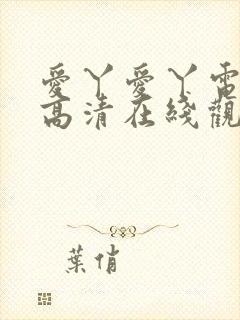 愛丫愛丫電
高清在綫觀
葉俏